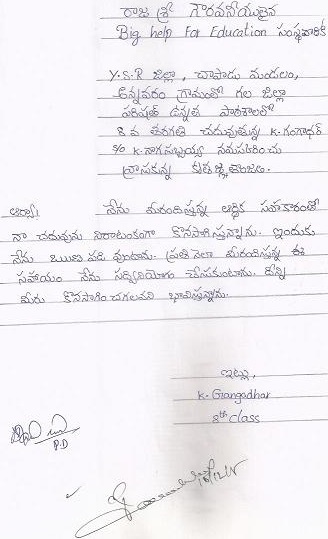 రాజ శ్రీ గౌరవనీయులైన
Big help For Education సంస్థవారికి
Y.S.R జిల్లా, చాపాడు మండలం,
అన్నవరం గ్రామంలో గల జిల్లా
పరిషత్ ఉన్నత పాఠశాలలో
8 వ తరగతి చదువుతున్న K.గంగాధర్
S/o K.నాగసుబ్బయ్య నమస్కరించి
వ్రాసుకున్న కృతజ్ఞతాంజలి.
ఆర్యా, నేను మీరందిస్తున్న ఆర్థిక సహకారంతో
నా చదువును నిరాటంకంగా కొనసాగిస్తున్నాను. ఇందుకు
నేను ఋణపడి వుంటాను. ప్రతినెలా మీరందిస్తున్న ఈ
సహాయం నేను సద్వినియోగం చేసుకుంటాను. దీన్ని
మీరు కొనసాగించగలవని భావిస్తున్నాను.
ఇట్లు,
K. Gangadhar
8th Class
P.D